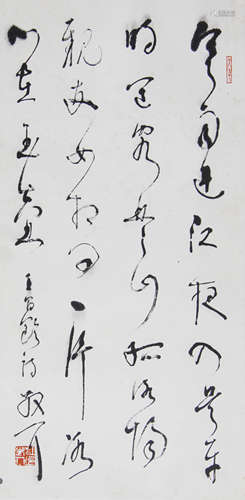 寒雨连江夜入吴平
明送客楚山孤洛阳
亲友如相问一片冰
心在玉壶 王昌龄诗 敬方